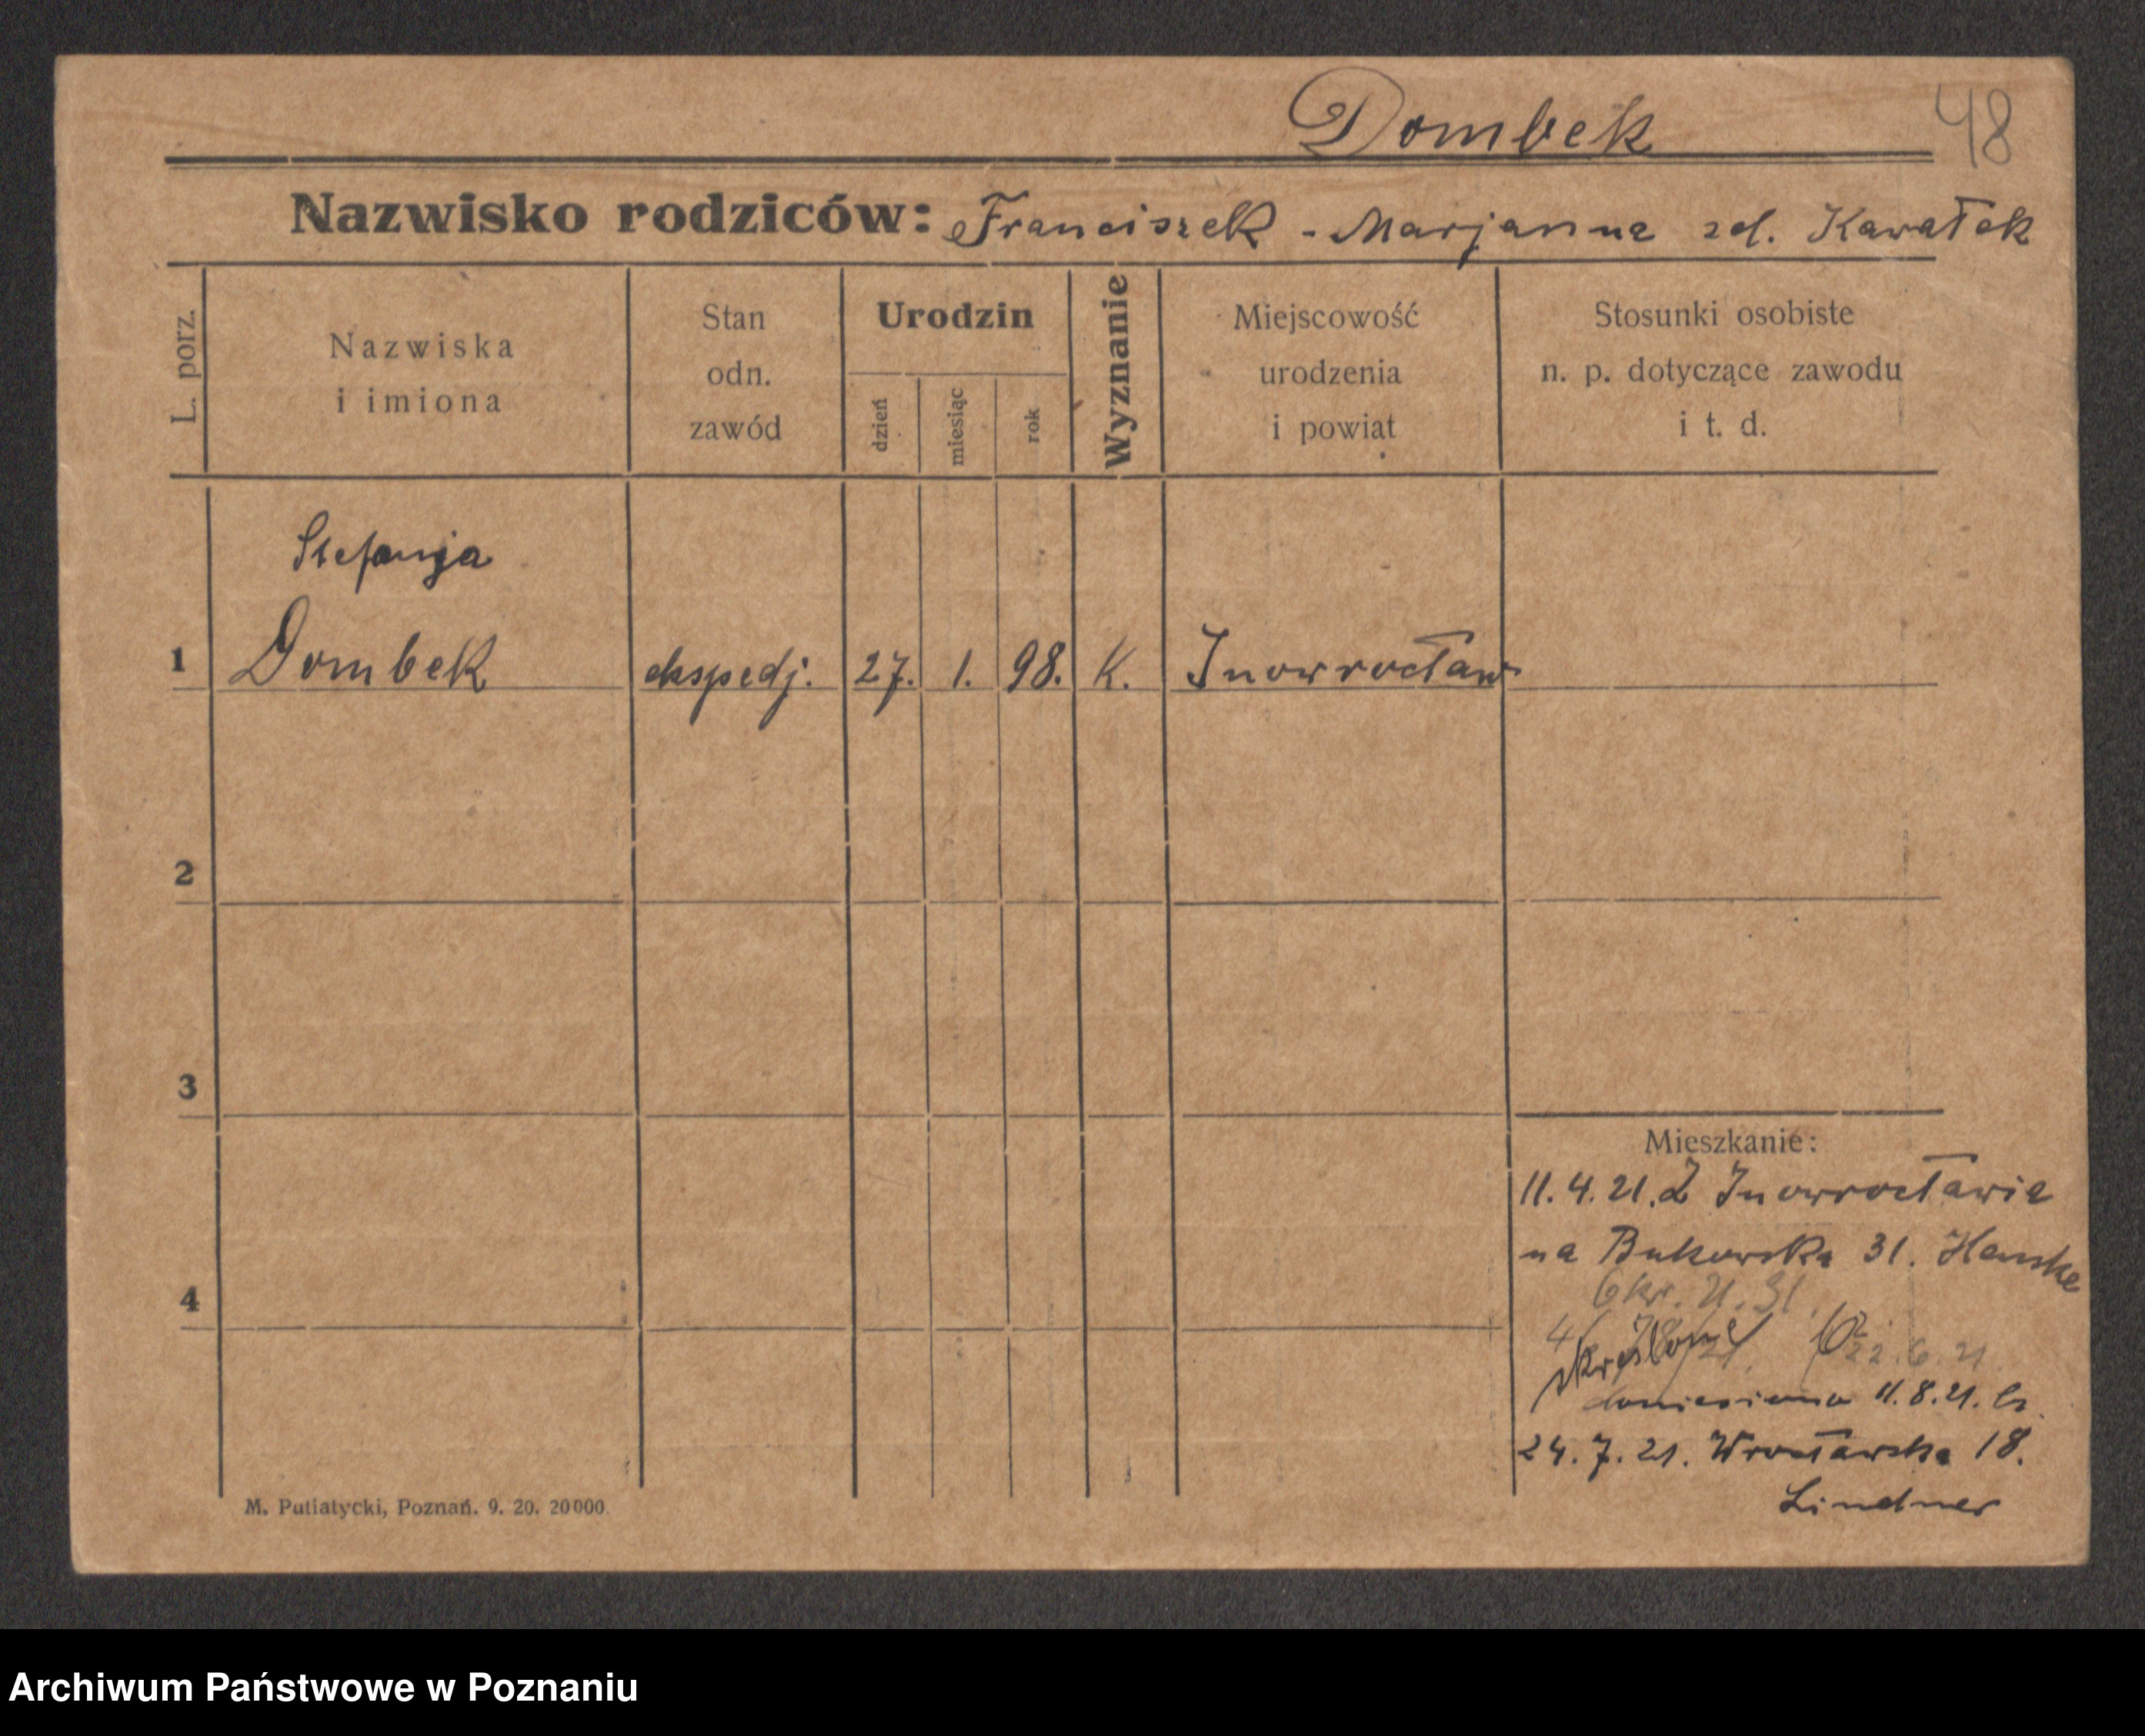 Dombek
48
Nazwisko rodziców: Franciszek - Marjanna zd. Kawałek
L. porz.
Nazwiska
i imiona
Stan
odn.
zawód
Urodzin
dzień
miesiąc
rok
Wyznanie
Miejscowość
urodzenia
i powiat
Stosunki osobiste
n. p. dotyczące zawodu
i t. d.
Stefanja
1 Dombek ekspedj. 27. 1. 98. K. Inowrocław
2
3
4
Mieszkanie:
11.4.21. Z Inowrocławia
na Bukowska 31. Hanske
skreślone 22.6.21
doniesiono 11.8.21.
24.7.21. Wrocławska 18.
Lindner
M. Putiatycki, Poznań. 9. 20. 20000.
Archiwum Państwowe w Poznaniu